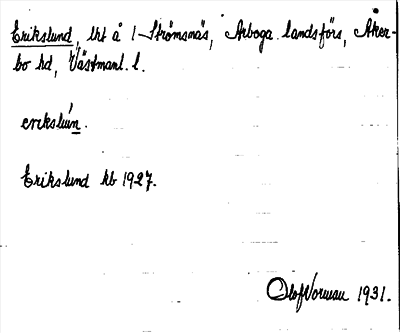 Erikslund, lht å 1 Strömsnäs, Arboga landsförs, Åker-
bo hd, Västmanl. l.
erikslun.
Erikslund kb 1927.
Olof Norman 1931.